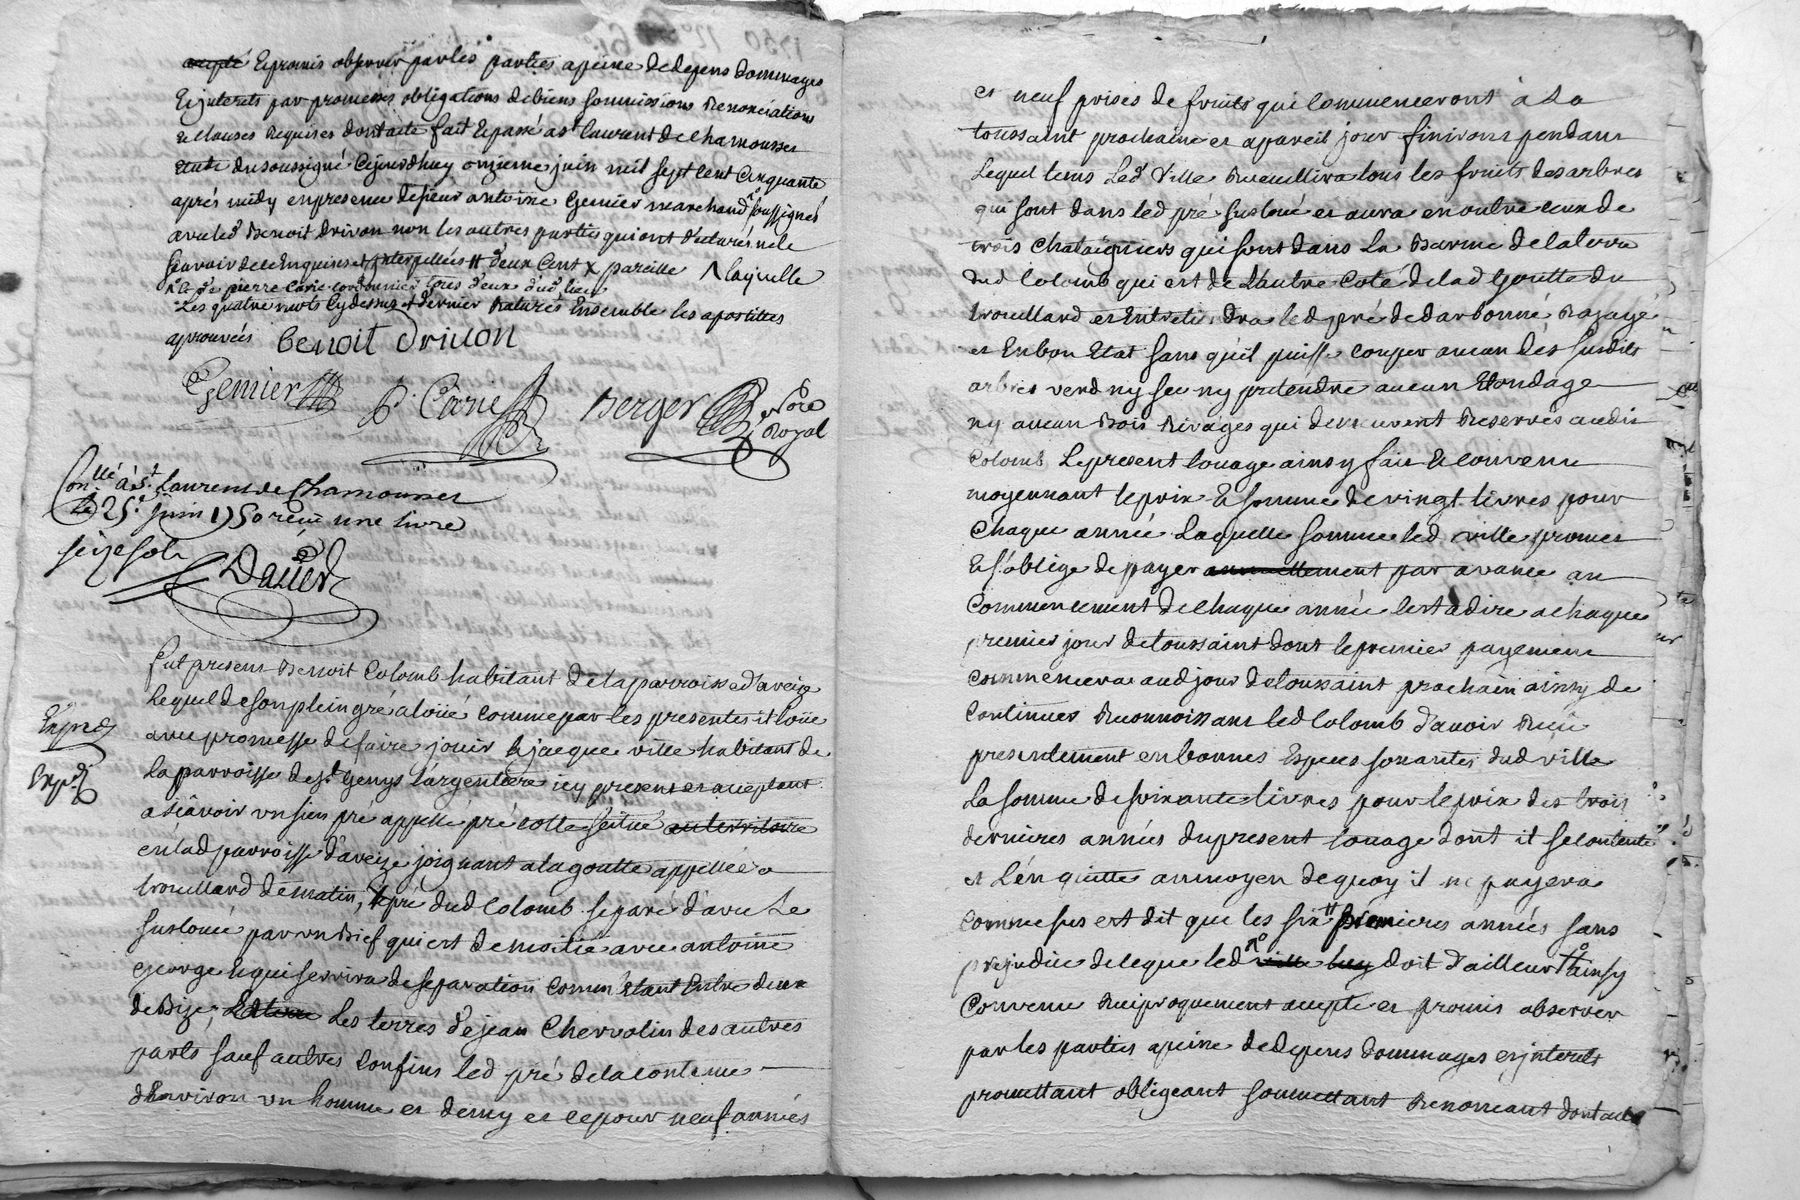 accepté Et promis observer par les parties a peine de depens dommages
Et jnterets par promesses obligations de biens soumissions Renonciations
et Clauses Requises dont acte fait Et passé a st laurent de chamousset
Etude du soussigné Cejourdhuy onzieme juin mil sept cent cinquante
aprés midy en presence de sieur antoine Gemier marchand soussignés
avec led Benoit Drivon non les autres parties qui ont declaré ne le
sçavoir de ce Enquises et jnterpellées # deux cent x pareille ^ laquelle
pierre Carie cordonnier tous deux dud lieu
Les quatre mots cy dessus et dernier Raturés Ensemble les apostilles
aprouvées Benoit Drivon
Gemier P. Carie Berger No.re Royal
Con.llé à S.t Laurent de Chamousset
Le 25.e juin 1750 reçu une livre
seize sols
Daver
Fut present Benoit Colomb habitant de la parroisse d'aveize
Lequel de son plein gré a loüé comme par les presentes il loüe
avec promesse de faire jouir a jacque ville habitant de
Exped
la parroisse de st Genys l'argentiere icy present et acceptant
Exped
a sçavoir un sien pré appellé pré colte scitué au territoire
en lad parroisse d'aveize joignant a la goutte appellée
trouillard de matin, le pré dud Colomb separé d'avec le
susloué par un Bief qui est de moitié avec antoine
george Et qui servira de separation Comm Etant Entre deux
de Bize, les terres de jean Chervolin des autres
parts sauf autres Confins led pré de la contenue
d'Environ un homme et demy et ce pour neuf années
et neuf prises de fruits qui Commenceront à La
toussaint prochaine et a pareil jour finiront pendant
Lequel tems Led Ville Recueillira tous les fruits des arbres
qui sont dans led pré susloué et aura en outre ceux de
trois chataigniers qui sont dans La Barme de la terre
dud Colomb qui est de L'autre Coté de lad Goutte du
trouillard et Entretiendra led pré de darbonné Razagé
et En bon Etat sans qu'il puisse Couper aucun des susdits
arbres verd ny sec ny pretendre aucun Etondage
ny aucun Bois Rivages qui demeurent Reservés audit
Colomb Le present louage ainsy fait Et Convenu
moyennant le prix Et somme de vingt livres pour
Chaque année Laquelle somme led ville promet
Et s'oblige de payer annuellement par avance au
Commencement de Chaque année C'est a dire a chaque
premier jour de toussaint dont le premier payement
Commencera aud jour de toussaint prochain ainsy de
Continuer Reconnoissant led Colomb d'avoir Reçû
presentement en bonnes Especes sonantes dud ville
La somme de soixante livres pour le prix des trois
dernieres années du present louage dont il se contente
et L'en quitte au moyen de quoy il ne payera
Comme sus est dit que les six premieres années sans
prejudice de ce que led ville luy doit d'ailleurs ainsy
Convenu Reciproquement accepté et promis observer
par les parties a peine de depens dommages et jnterets
promettant obligeant soumettant Renonceant dont acte